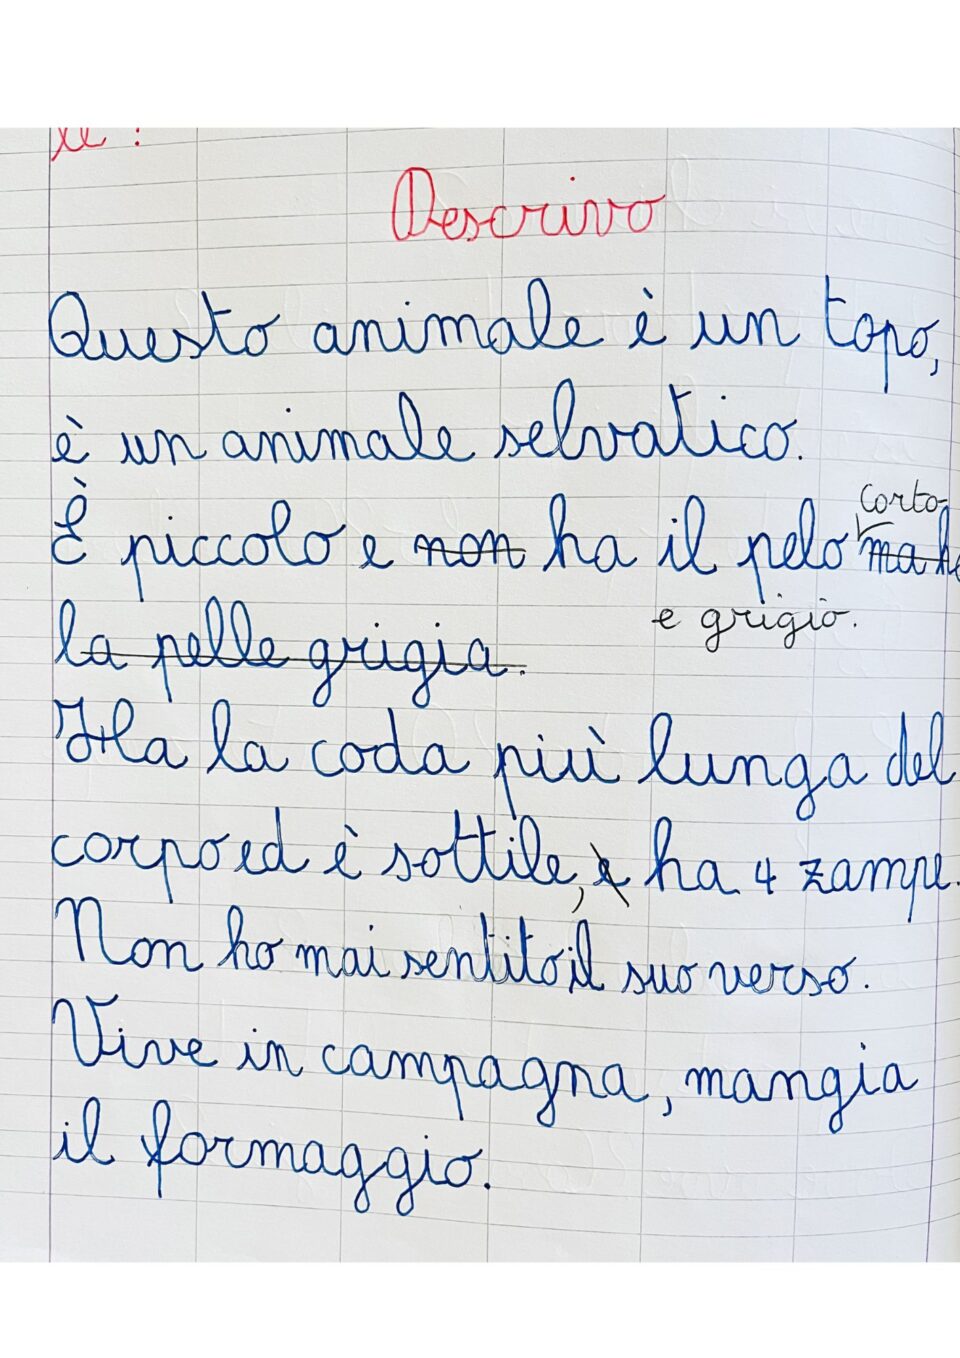 Descrivo
Questo animale è un topo,
è un animale selvatico.
corto
È piccolo e non ha il pelo ma ha
e grigio.
la pelle grigia.
Ha la coda più lunga del
corpo ed è sottile, e ha 4 zampe.
Non ho mai sentito il suo verso.
Vive in campagna, mangia
il formaggio.